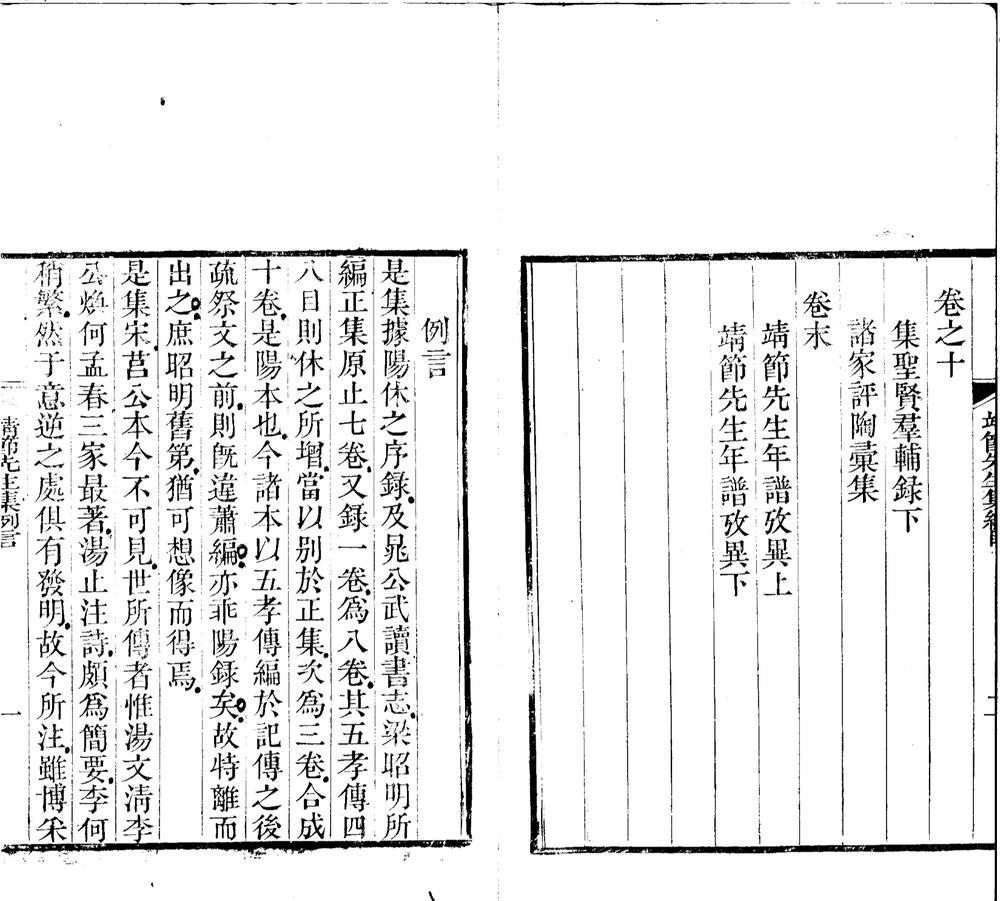 卷之十
集聖賢羣輔録下
諸家評陶彙集
卷末
靖節先生年譜攷異上
靖節先生年譜攷異下
二
例言
是集據陽休之序録及晁公武讀書志梁昭明所
編正集原止七卷又録一卷為八卷其五孝傳四
八目則休之所增當以别於正集次為三卷合成
十卷是陽本也今諸本以五孝傳編於記傳之後
疏祭文之前則旣違蕭編亦乖陽録矣故特離而
出之庶昭明舊第猶可想像而得焉
是集宋莒公本今不可見世所傳者惟湯文淸李
公煥何孟春三家最著湯止注詩頗為簡要李何
稍繁然于意逆之處俱有發明故今所注雖博采
靖節先生集例言
一